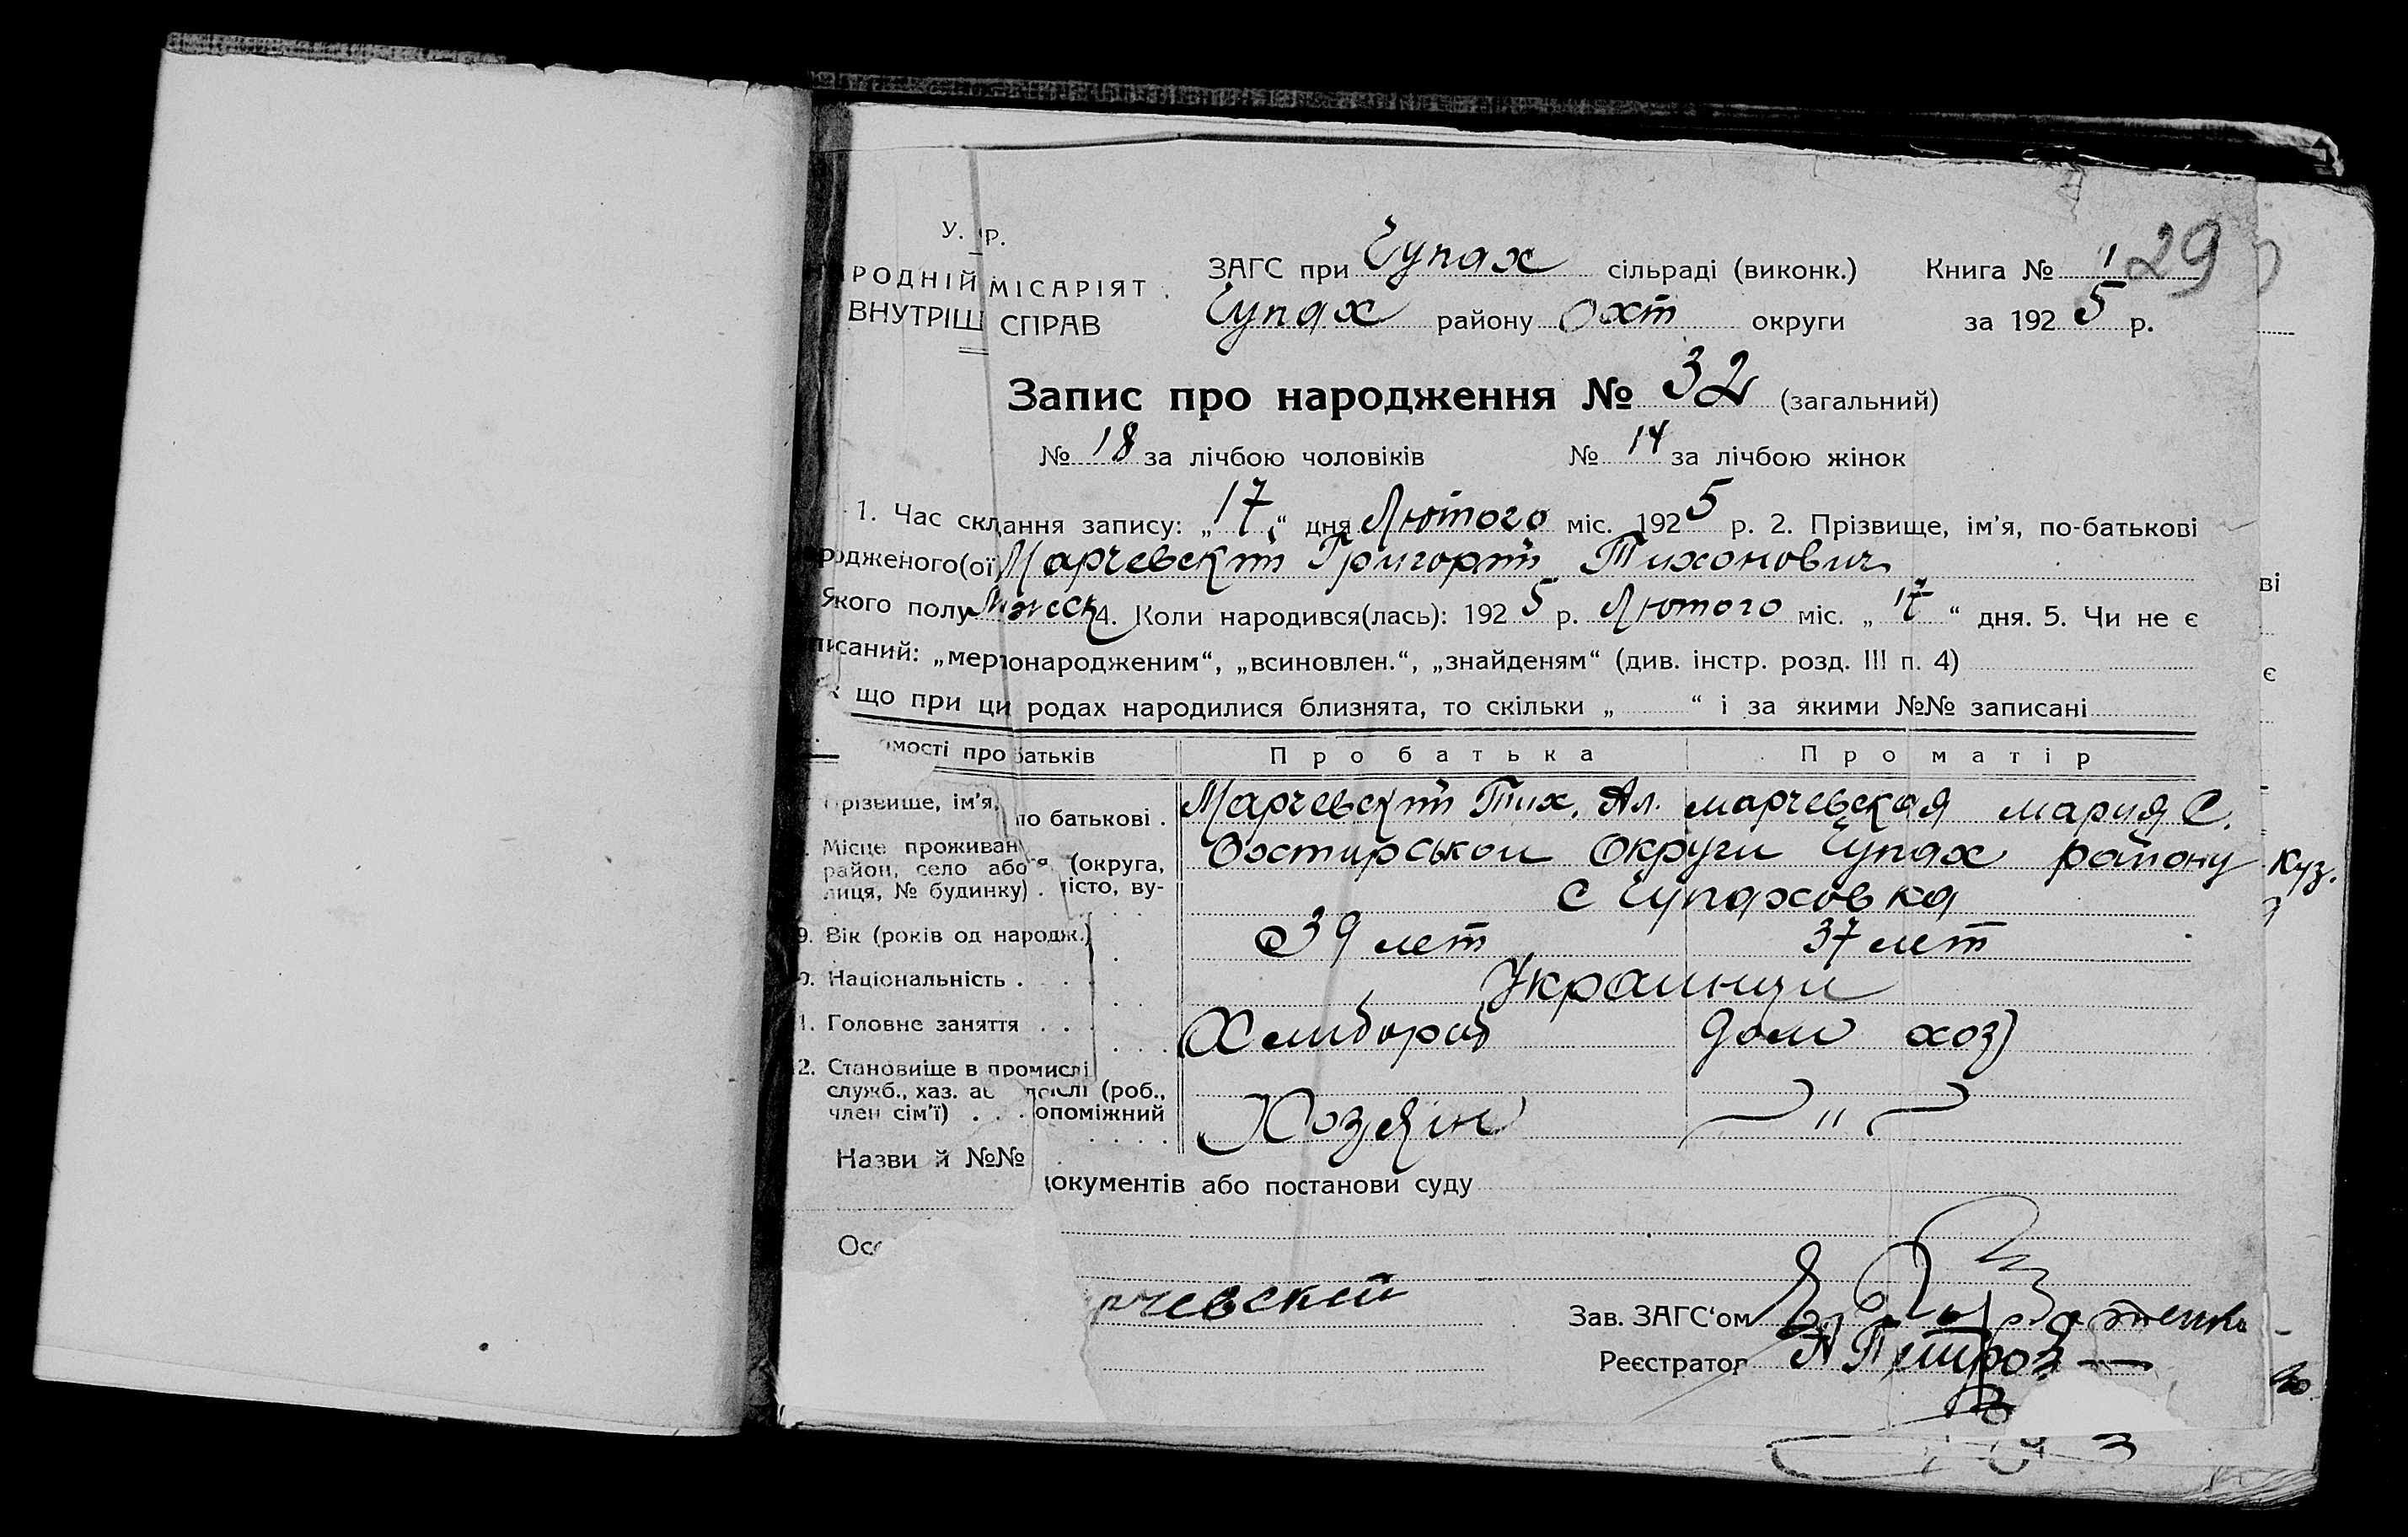 У. Р.
РОДНІЙ МІСАРІЯТ
ВНУТРІШ СПРАВ
ЗАГС при Чупах сільраді (виконк.) Книга № 1 29
Чупах району Охт округи за 1925 р.
Запис про народження № 32 (загальний)
№ 18 за лічбою чоловіків № 14 за лічбою жінок
1. Час скл ання запису: „17“ дня Лютого міс. 1925 р. 2. Прізвище, ім’я, по-батькові
родженого(ої Марчевский Григорій Тихонович
Якого полу Мужеск 4. Коли народився(лась): 1925 р. Лютого міс. „17“ дня. 5. Чи не є
писаний: „мер онародженим“, „всиновлен.“, „знайденям“ (див. інстр. розд. III п. 4)
що при ци родах народилися близнята, то скільки „ “ і за якими №№ записані
омості про батьків Про батька Про матір
Прізвище, ім’я, по батькові . Марчевский Тих. Ал. марчевская мария С.
Місце проживан (округа,
район, село або місто, ву-
лиця, № будинку) .
Охтирськои Округи Чупах району
с Чупаховка
9. Вік (років од народж.) 39 лет 37 лет
Національність . Украинци
1. Головне заняття . . . Хлибороб дом хоз
2. Становище в промислі
служб., хаз. аб (роб.,
член сім’ї) . . . опоміжний
Хозяін "
Назви й №№ документів або постанови суду
Осо
рчевский
Зав. ЗАГС‘ом
Реєстратор
Куз.